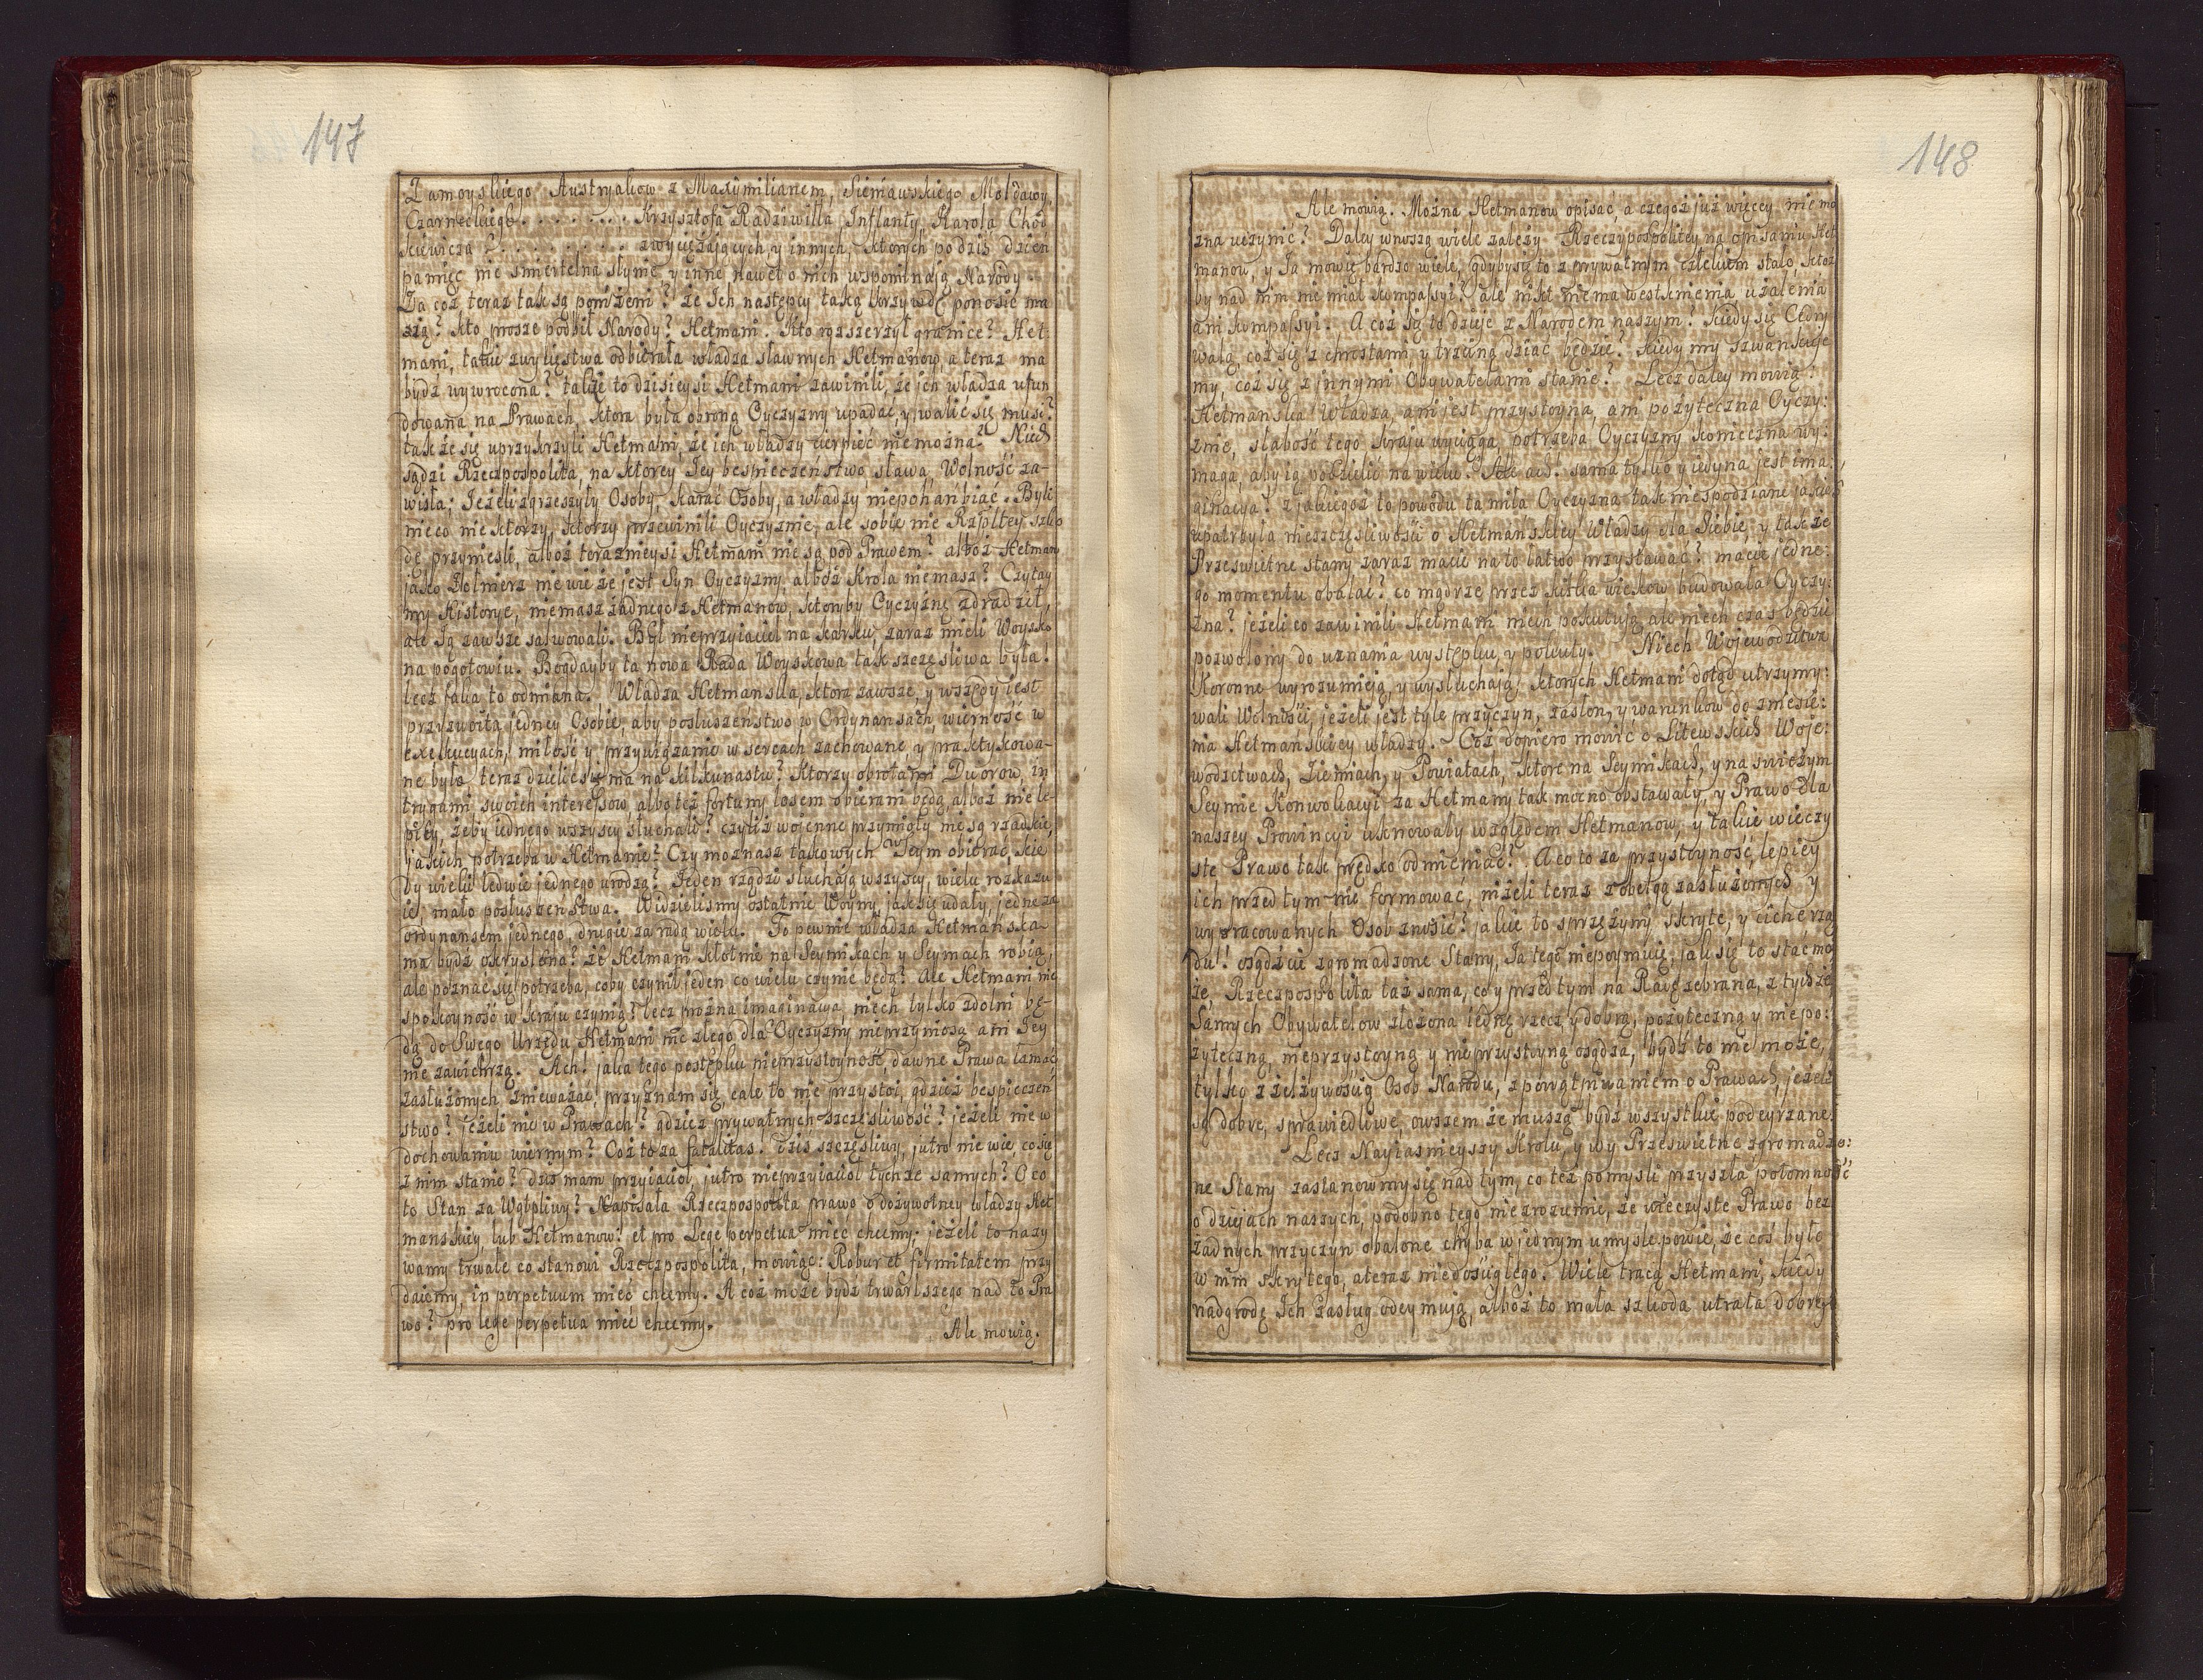 147
Zamoyskiego Austryakow z Maxymilianem, Sieniawskiego Mołdawy,
Czarneckiego . . . . . . . Krzysztofa Radziwiłła, Inflanty, Karola Chod
kiewicza . . . . . . . . zwyciężających, y innych, ktorych po dziś dzień
pamięć nie śmiertelna słynie, y inne nawet o nich wspominają Narody.
Za coż teraz tak są poniżeni? że Ich następcy taką krzywdę ponosić ma
ią? kto prosze podbił Narody? Hetmani. Kto rozszerzył granice? Het
mani, takie zwycięstwa odbierała władza sławnych Hetmanow, a teraz ma
bydź wywrocona? także to dzisieysi Hetmani zawinili, że ich władza ufun
dowana na Prawach, ktora była obroną Oyczyzny upadać, y walić się musi?
tak że się uprzykrzyli Hetmani, że ich władzy cierpieć nie można? Niech
sądzi Rzeczpospolita, na ktorey Jey bespieczeństwo, sława, Wolność za-
wisła; Jeżeli zgrzeszyły Osoby, karać Osoby, a władzy niepohańbiać. Byli
nieco niektorzy, ktorzy przewinili Oyczyznie, ale sobie nie Rzpltey szko
dę przyniesli, alboż teraznieysi Hetmani nie są pod Prawem? alboż Hetman
jako Żołnierz nie wie że jest Syn Oyczyzny, alboż Krola niemasz? Czytay
my Historye, niemasz żadnego z Hetmanow, ktoryby Oyczyznę zdradził,
ale Ją zawsze salwowali. Był nieprzyiaciel na karku, zaraz mieli Woysko
na pogotowiu. Bogdayby ta nowa Rada Woyskowa tak szczęśliwa była!
lecz jaka to odmiana! Władza Hetmanska, ktora zawsze, y wszędy jest
przyzwoita jedney Osobie, aby posłuszeństwo w Ordynansach, wierność w
exekucyach, miłość y przywiązanie w sercach zachowane, y praktykowa-
ne było teraz dzielić się ma na kilkunastu? ktorzy obrotami Dworow, in
trygami swoich interessow, albo też fortuny losem obierani będą, alboż nie le-
piey, żeby iednego wszyscy słuchali? czyliż wojenne przymioty nie są rzadkie,
jakich potrzeba w Hetmanie? Czy możnasz takowych w Seym obierać, kie
dy wieki ledwie jednego urodzą? Jeden rządzi słuchają wszyscy, wielu rozkazu
ie, mało posłuszeństwa. Widzielismy ostatnie Woyny, jak się udały, jedne za
ordynansem jednego, drugie za radą wielu. To pewnie władza Hetmańska
ma bydź okryslona? że Hetmani kłotnie na Seymikach y Seymach robią,
ale poznać się potrzeba, coby czynił jeden co wielu czynić będą? Ale Hetmani nie
spokoyność w kraju czynią? lecz prożna imaginacya, niech tylko zdolni bę-
dą do Swego Urzędu Hetmani nic złego dla Oyczyzny nieprzyniosą ani Jey
nie zawichrzą. Ach! jaka tego postępku nieprzystoyność dawne Prawa łamać,
zasłużonych znieważać, przyznam się, cale to nie przystoi, gdzież bespieczeń
stwo? jeżeli nie w Prawach? gdzież prywatnych szczęsliwość? jeżeli nie w
dochowaniu wiernym? Coż to za fatalitas. Dziś szczęśliwy, jutro nie wie, co się
z nim stanie? dziś mam przyiacioł, jutro nieprzyiacioł tychże samych? O co
to Stan za Wątpliwy? Napisała Rzeczpospolita prawo o dożywotney władzy Het
manskiey, lub Hetmanow? et pro Lege perpetua mieć chcemy; jeżeli to nazy
wamy trwałe co stanowi Rzeczpospolita, mowiąc: Robur et firmitatem przy
daiemy, in perpetuum mieć chcemy. A coż może bydź trwarłszego nad to Pra
wo? pro lege perpetua mieć chcemy.
Ale mowią.
148
Ale mowią. Można Hetmanow opisać, a czegoż już więcey nie mo
żna uczynić? Daley wnoszą wiele zależy Rzeczypospolitey na opisaniu Het
manow, y Ja mowię bardzo wiele, gdyby się to z prywatnym człekiem stało, ktoż
by nad nim nie miał kompassyi? ale nikt niema westchnienia użalenia
ani kompassyi. A coż się to dzieje z Narodem naszym? kiedy się Cedry
walą, coż się z chrostami, y trzciną dziać będzie? kiedy my szwankuje
my, coż się z innymi Obywatelami stanie? Lecz daley mowią:
Hetmańska Władza, ani jest przystoyna, ani pożyteczna Oyczy:
znie, słabość tego kraju wyciąga, potrzeba Oyczyzny konieczna wy:
maga, aby ią podzielić na wielu. Ale ach! sama tylko y iedyna jest ima:
ginacya? z jakiegoż to powodu ta miła Oyczyzna tak niespodziane jakieś
upatrzyła nieszczęsliwości o Hetmanskiey Władzy dla Siebie, y tak że
Prześwietne stany zaraz macie na to łatwo przystawać? macie jedne:
go momentu obalać? co mądrze przez kilka wiekow budowała Oyczy:
zna? jeżeli co zawinili Hetmani niech pokutują, ale niech czas będzie
pozwolony do uznania występku, y pokuty. Niech Wojewodztwa
Koronne wyrozumieją, y wysłuchają, ktorych Hetmani dotąd utrzymy:
wali Wolności, jeżeli jest tyle przyczyn, zasłon, y warunkow do zniesie:
nia Hetmańskiey władzy. Coż dopiero mowić o Litewskich Woje:
wodztwach, Ziemiach, y Powiatach, ktore na Seymikach, y na świeżym
Seymie Konwokacyi za Hetmany tak mocno obstawały, y Prawo dla
naszey Prowincyi uknowały względem Hetmanow, y takie wieczy
ste Prawo tak prędko odmieniać? A co to za przystoyność, lepiey
ich przed tym nie formować, niżeli teraz z obelgą zasłużonych y
wypracowanych Osob znosić? jakie to sprężyny skryte, y ciche rzą
du! osądźcie zgromadzone Stany, Ja tego niepoymuię, jak się to stać mo
że, Rzeczpospolita taż sama, co y przed tym na Radę zebrana, z tychże
Samych Obywatelow złożona iednę rzecz y dobrą, pożyteczną y niepo:
żyteczną, nieprzystoyną y nieprzystoyną osądza, bydź to nie może,
tylko z zelżywością Osob Narodu, z powątpiwaniem o Prawach, jeżeli
są dobre, sprawiedliwe, owszem że muszą bydź wszystkie podeyrzane.
Lecz Nayiasnieyszy Krolu, y wy Prześwietne zgromadzo:
ne Stany zastanowmy się nad tym, co też pomysli przyszła potomność
o dziejach naszych, podobno tego nie zrozumie, że wieczyste Prawo bez
żadnych przyczyn obalone chyba w jednym umyśle powie, że coś było
w nim skrytego, a teraz niedościgłego. Wiele tracą Hetmani, kiedy
nadgrodę Ich zasług odeymują, alboż to mała szkoda utrata dobrey